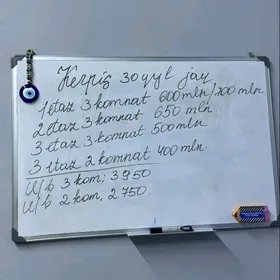 Kerpiç 30 ýyl jaý
1 etaz 3 komnat 600 mln/700 mln
2 etaz 3 komnat 650 mln
3 etaz 3 komnat 500 mln
3 etaz 2 komnat 400 mln
U/b 3 kom; 3 950
U/b 2 kom, 2 750.